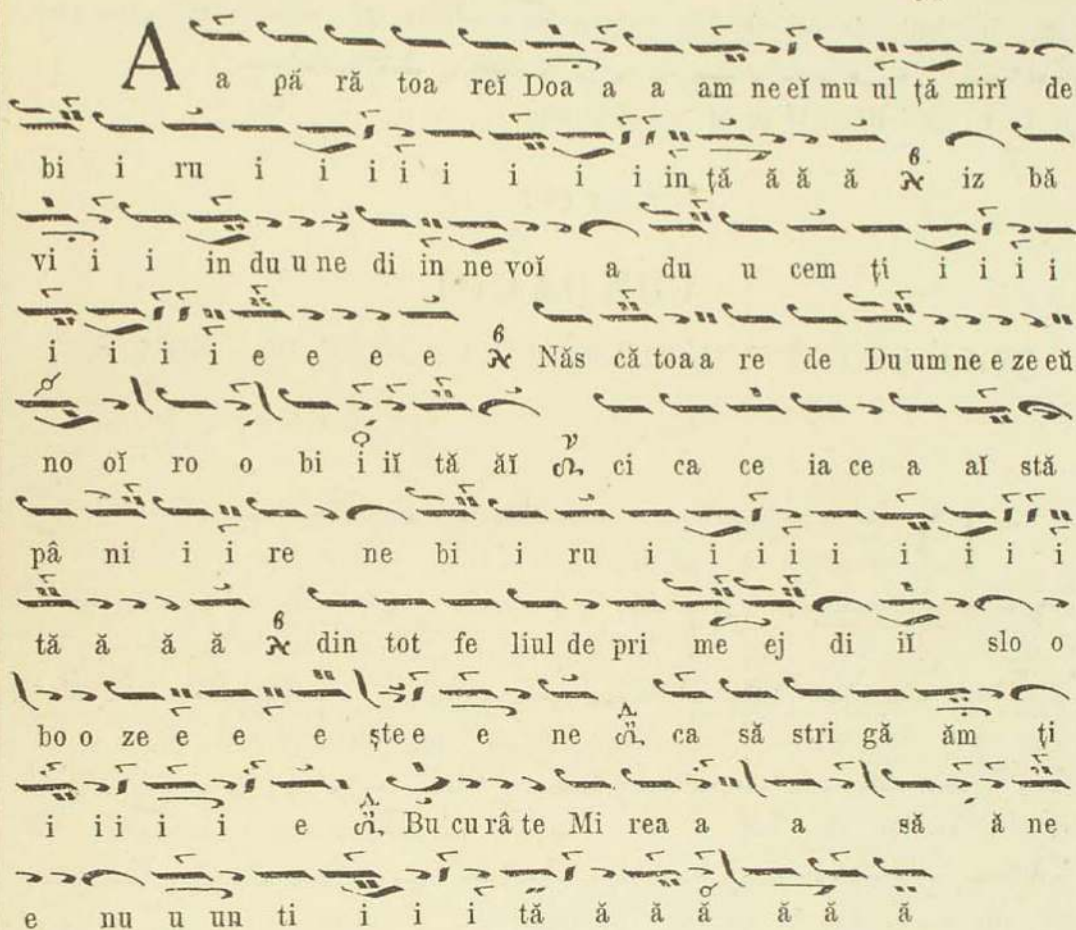 A a pă ră toa reĭ Doa a a am ne eĭ mu ul ță mirĭ de
bi i ru i i i i i i i i in ță ă ă ă iz bă
vi i i in du u ne di in ne voĭ a du u cem ți i i i i
i i i i e e e e Năs că toa a re de Du um ne e ze eŭ
no oĭ ro o bi i iĭ tă ăĭ ci ca ce ia ce a aĭ stă
pâ ni i i re ne bi i ru i i i i i i i i i
tă ă ă ă din tot fe liul de pri me ej di iĭ slo o
bo o ze e e e ște e e ne ca să stri gă ăm ți
i i i i i e Bu cu râ te Mi rea a a să ă ne
e nu u un ti i i i tă ă ă ă ă ă ă